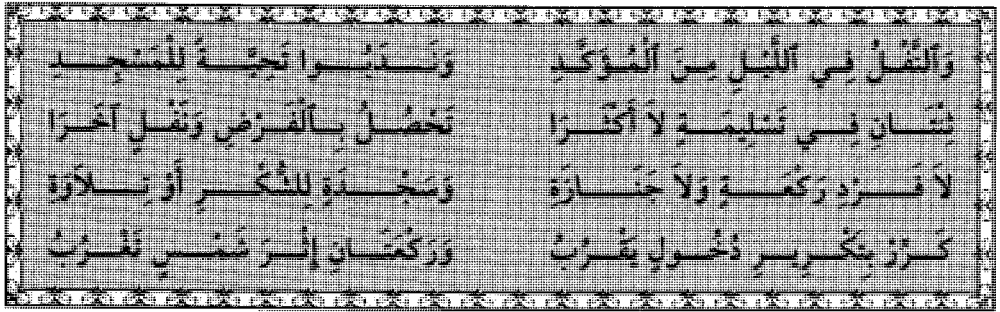 وَٱلنَّفْلُ فِي ٱللَّيْلِ مِنَ ٱلْمُؤَكَّدِ وَنَـدَبُـوا تَحِيَّـةً لِلْمَسْجِـدِ
ثِنْتَـانِ فِـي تَسْلِيمَـةٍ لاَ أَكْثَـرَا تَحْصُـلُ بِـٱلْفَـرْضِ وَنَفْـلٍ آخَـرَا
لاَ فَـرْدِ رَكْعَـةٍ وَلاَ جَنَـازَةِ وَسَجْـدَةٍ لِلشُّكْـرِ أَوْ تِـلاَوَةِ
كَـرِّرْ بِتَكْـرِيـرِ دُخُـولٍ يَقْـرُبُ وَرَكْعَتَـانِ إِثْـرَ شَمْـسٍ تَغْـرُبُ